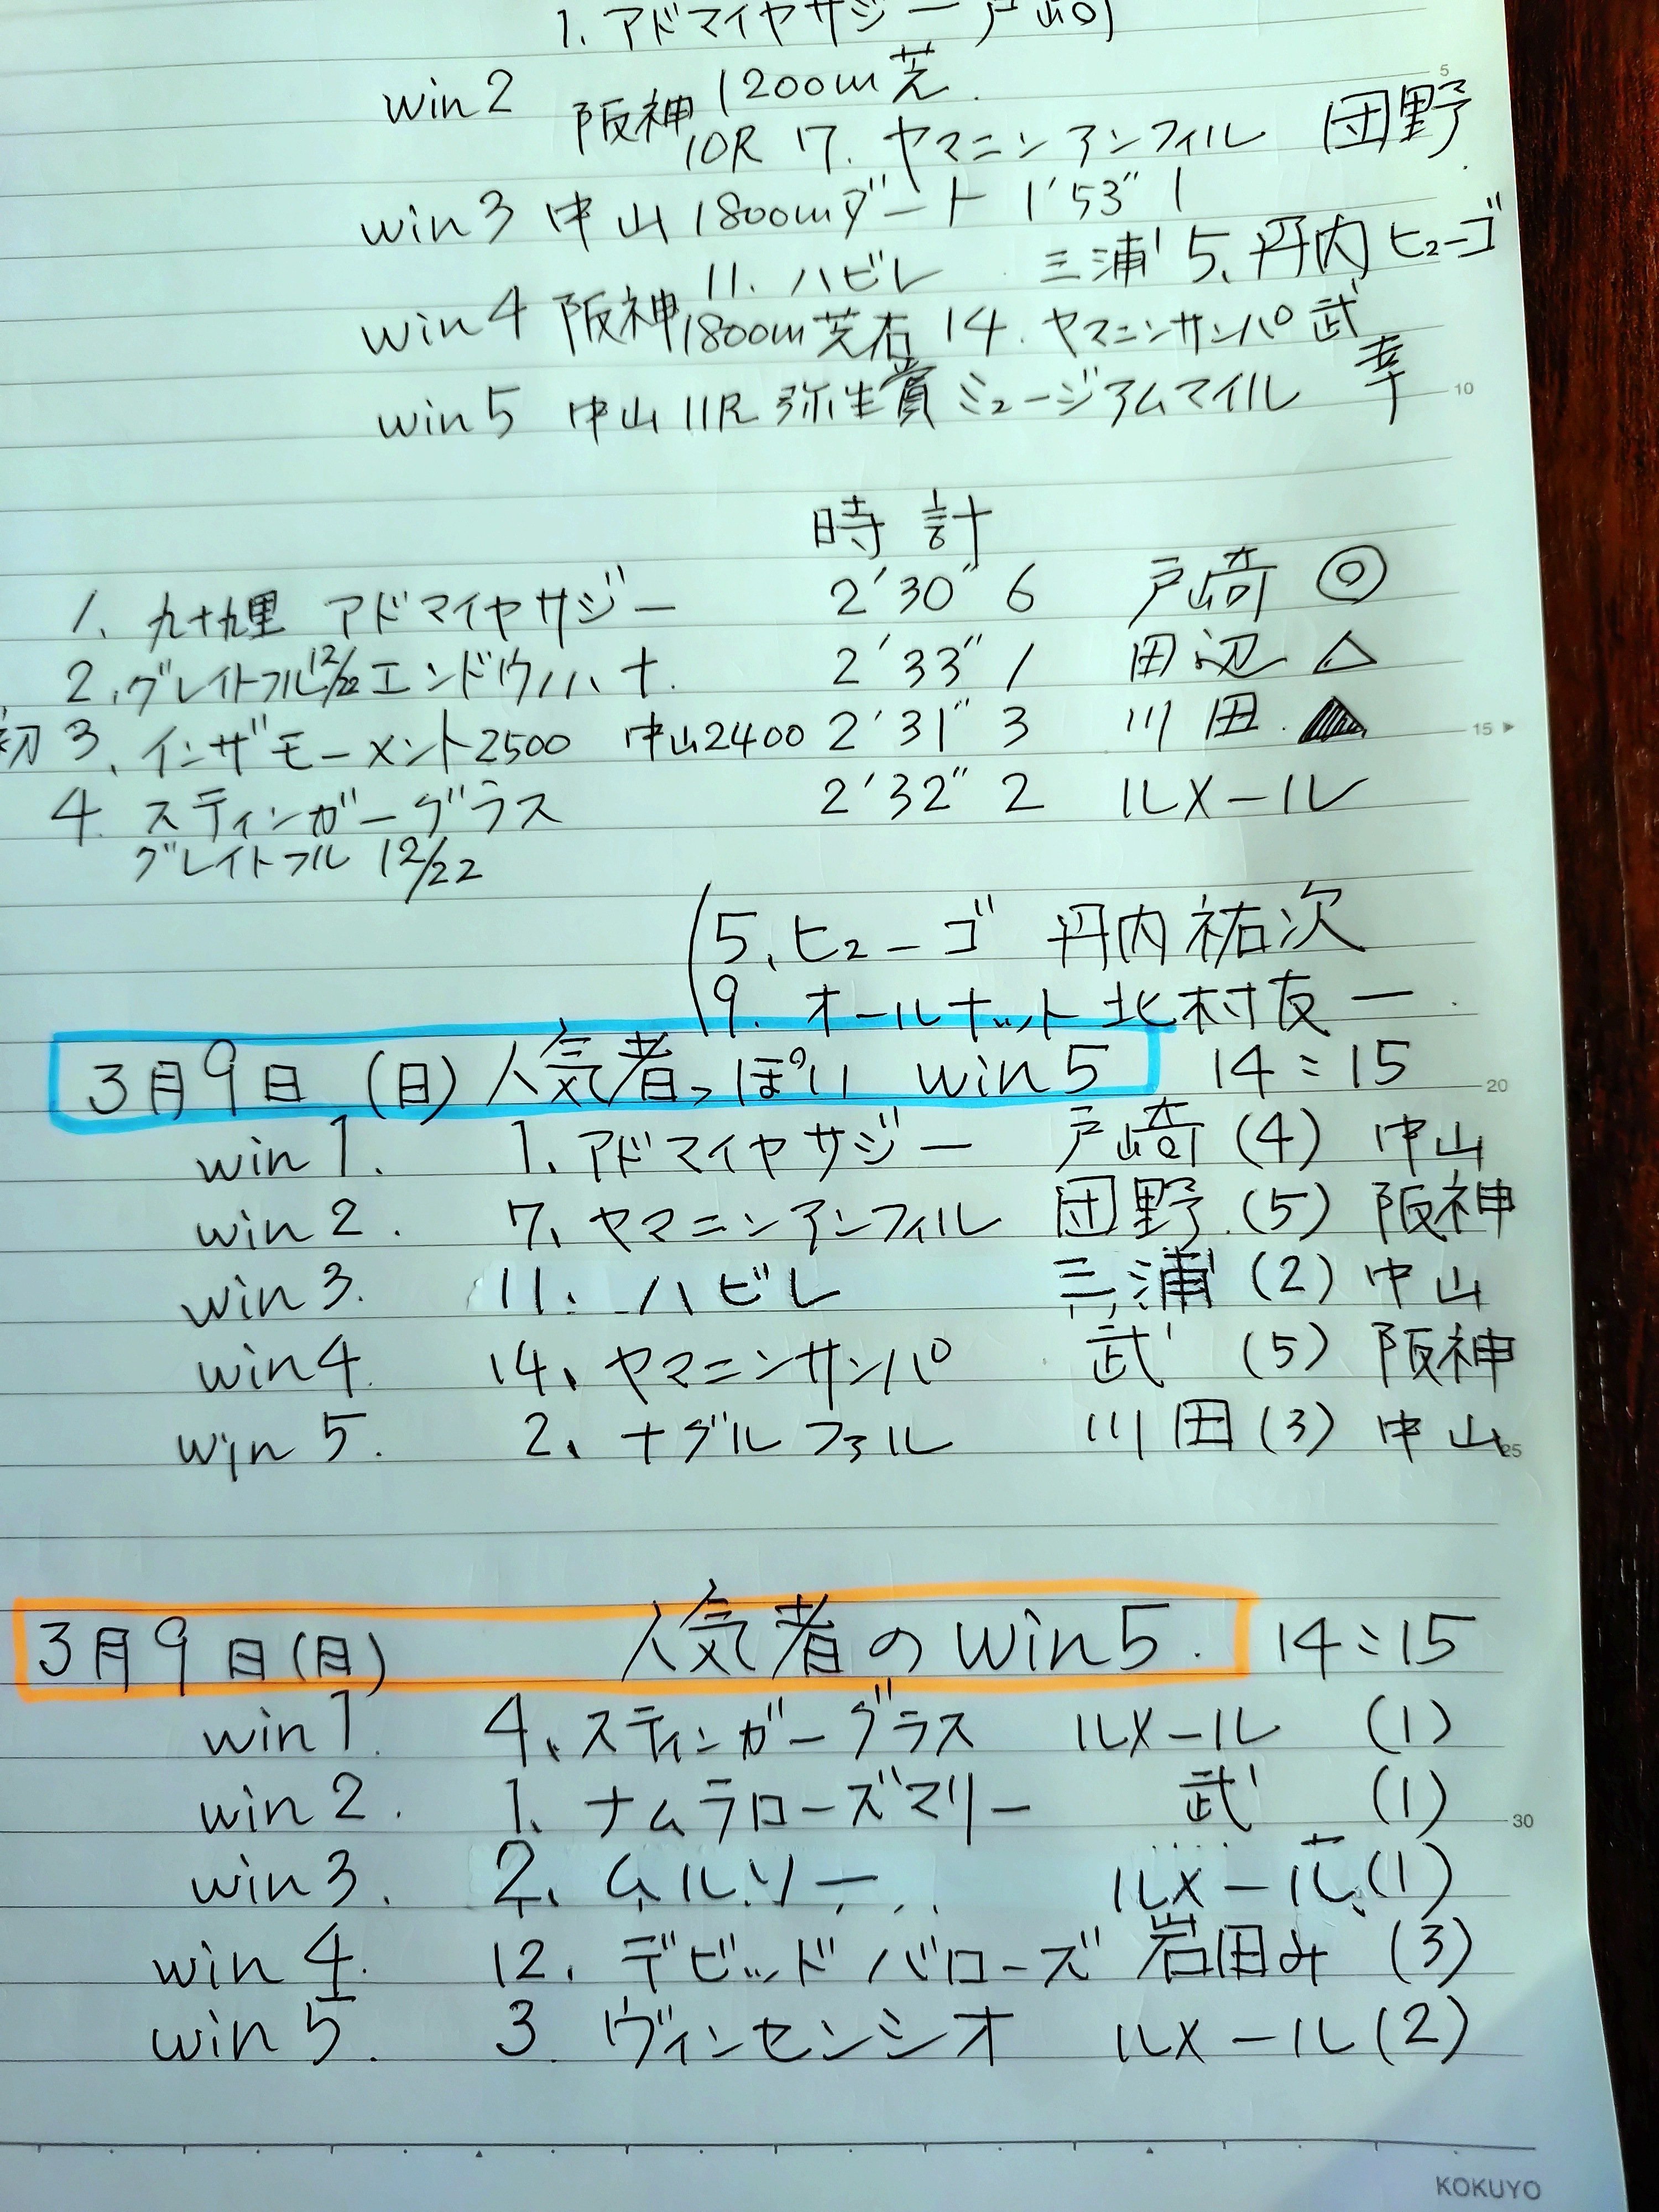 1. アドマイヤサジー 戸崎
win2 阪神 1200m芝
10R 7. ヤマニンアンフィル 団野
win3 中山 1800mダート 1'53"1
11. ハビレ 三浦 5、丹内 ヒューゴ
win4 阪神 1800m芝右 14. ヤマニンサンパ 武
win5 中山 11R 弥生賞 ミュージアムマイル 幸
時計
1、九十九里 アドマイヤサジー 2'30"6 戸崎 ◎
2、グレイトフル12/22 エンドウノハナ. 2'33"1 田辺 △
初 3、インザモーメント2500 中山2400 2'31"3 川田. ▲
4. スティンガーグラス 2'32"2 ルメール
グレイトフル 12/22
5、ヒューゴ 丹内祐次
9. オールナット 北村友一.
3月9日(日)人気者っぽい win5 14:15
win1. 1、アドマイヤサジー 戸崎(4) 中山
win2. 7、ヤマニンアンフィル 団野.(5) 阪神
win3. 11. ハビレ 三浦(2) 中山
win4. 14、ヤマニンサンパ 武(5) 阪神
win5. 2、ナグルファル 川田(3) 中山
3月9日(日) 人気者のwin5. 14:15
win1. 4、スティンガーグラス ルメール (1)
win2. 1、ナムラローズマリー 武 (1)
win3. 2、ムルソー ルメール(1)
win4. 12. デビッドバローズ 岩田み (3)
win5. 3. ヴィンセンシオ ルメール(2)
5
10
15
20
25
30
KOKUYO